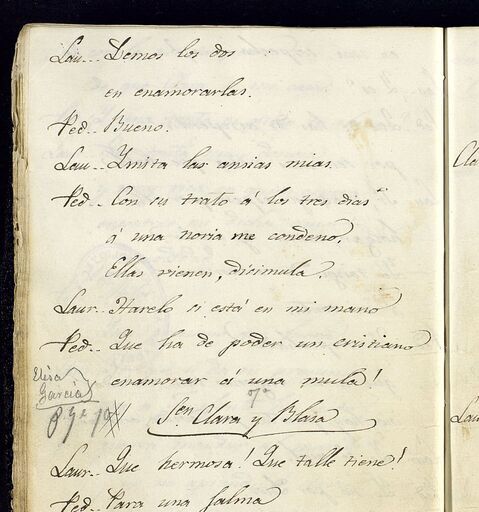 Lau.. Demos los dos
en enamorarlas.
Ped.. Bueno.
Lau.. Ymita las ansias mias.
Ped.. Con su trato á los tres dias
á una noria me condeno.
Ellas vienen, dicimula.
Laur.. Harelo si está en mi mano
Ped.. Que ha de poder un cristiano
enamorar á una mula!
Elisa
Garcia
7ª
Sen Clara y Blasa
Laur.. Que hermosa! Que talle tiene!
Ped.. Para una jalma
Cla